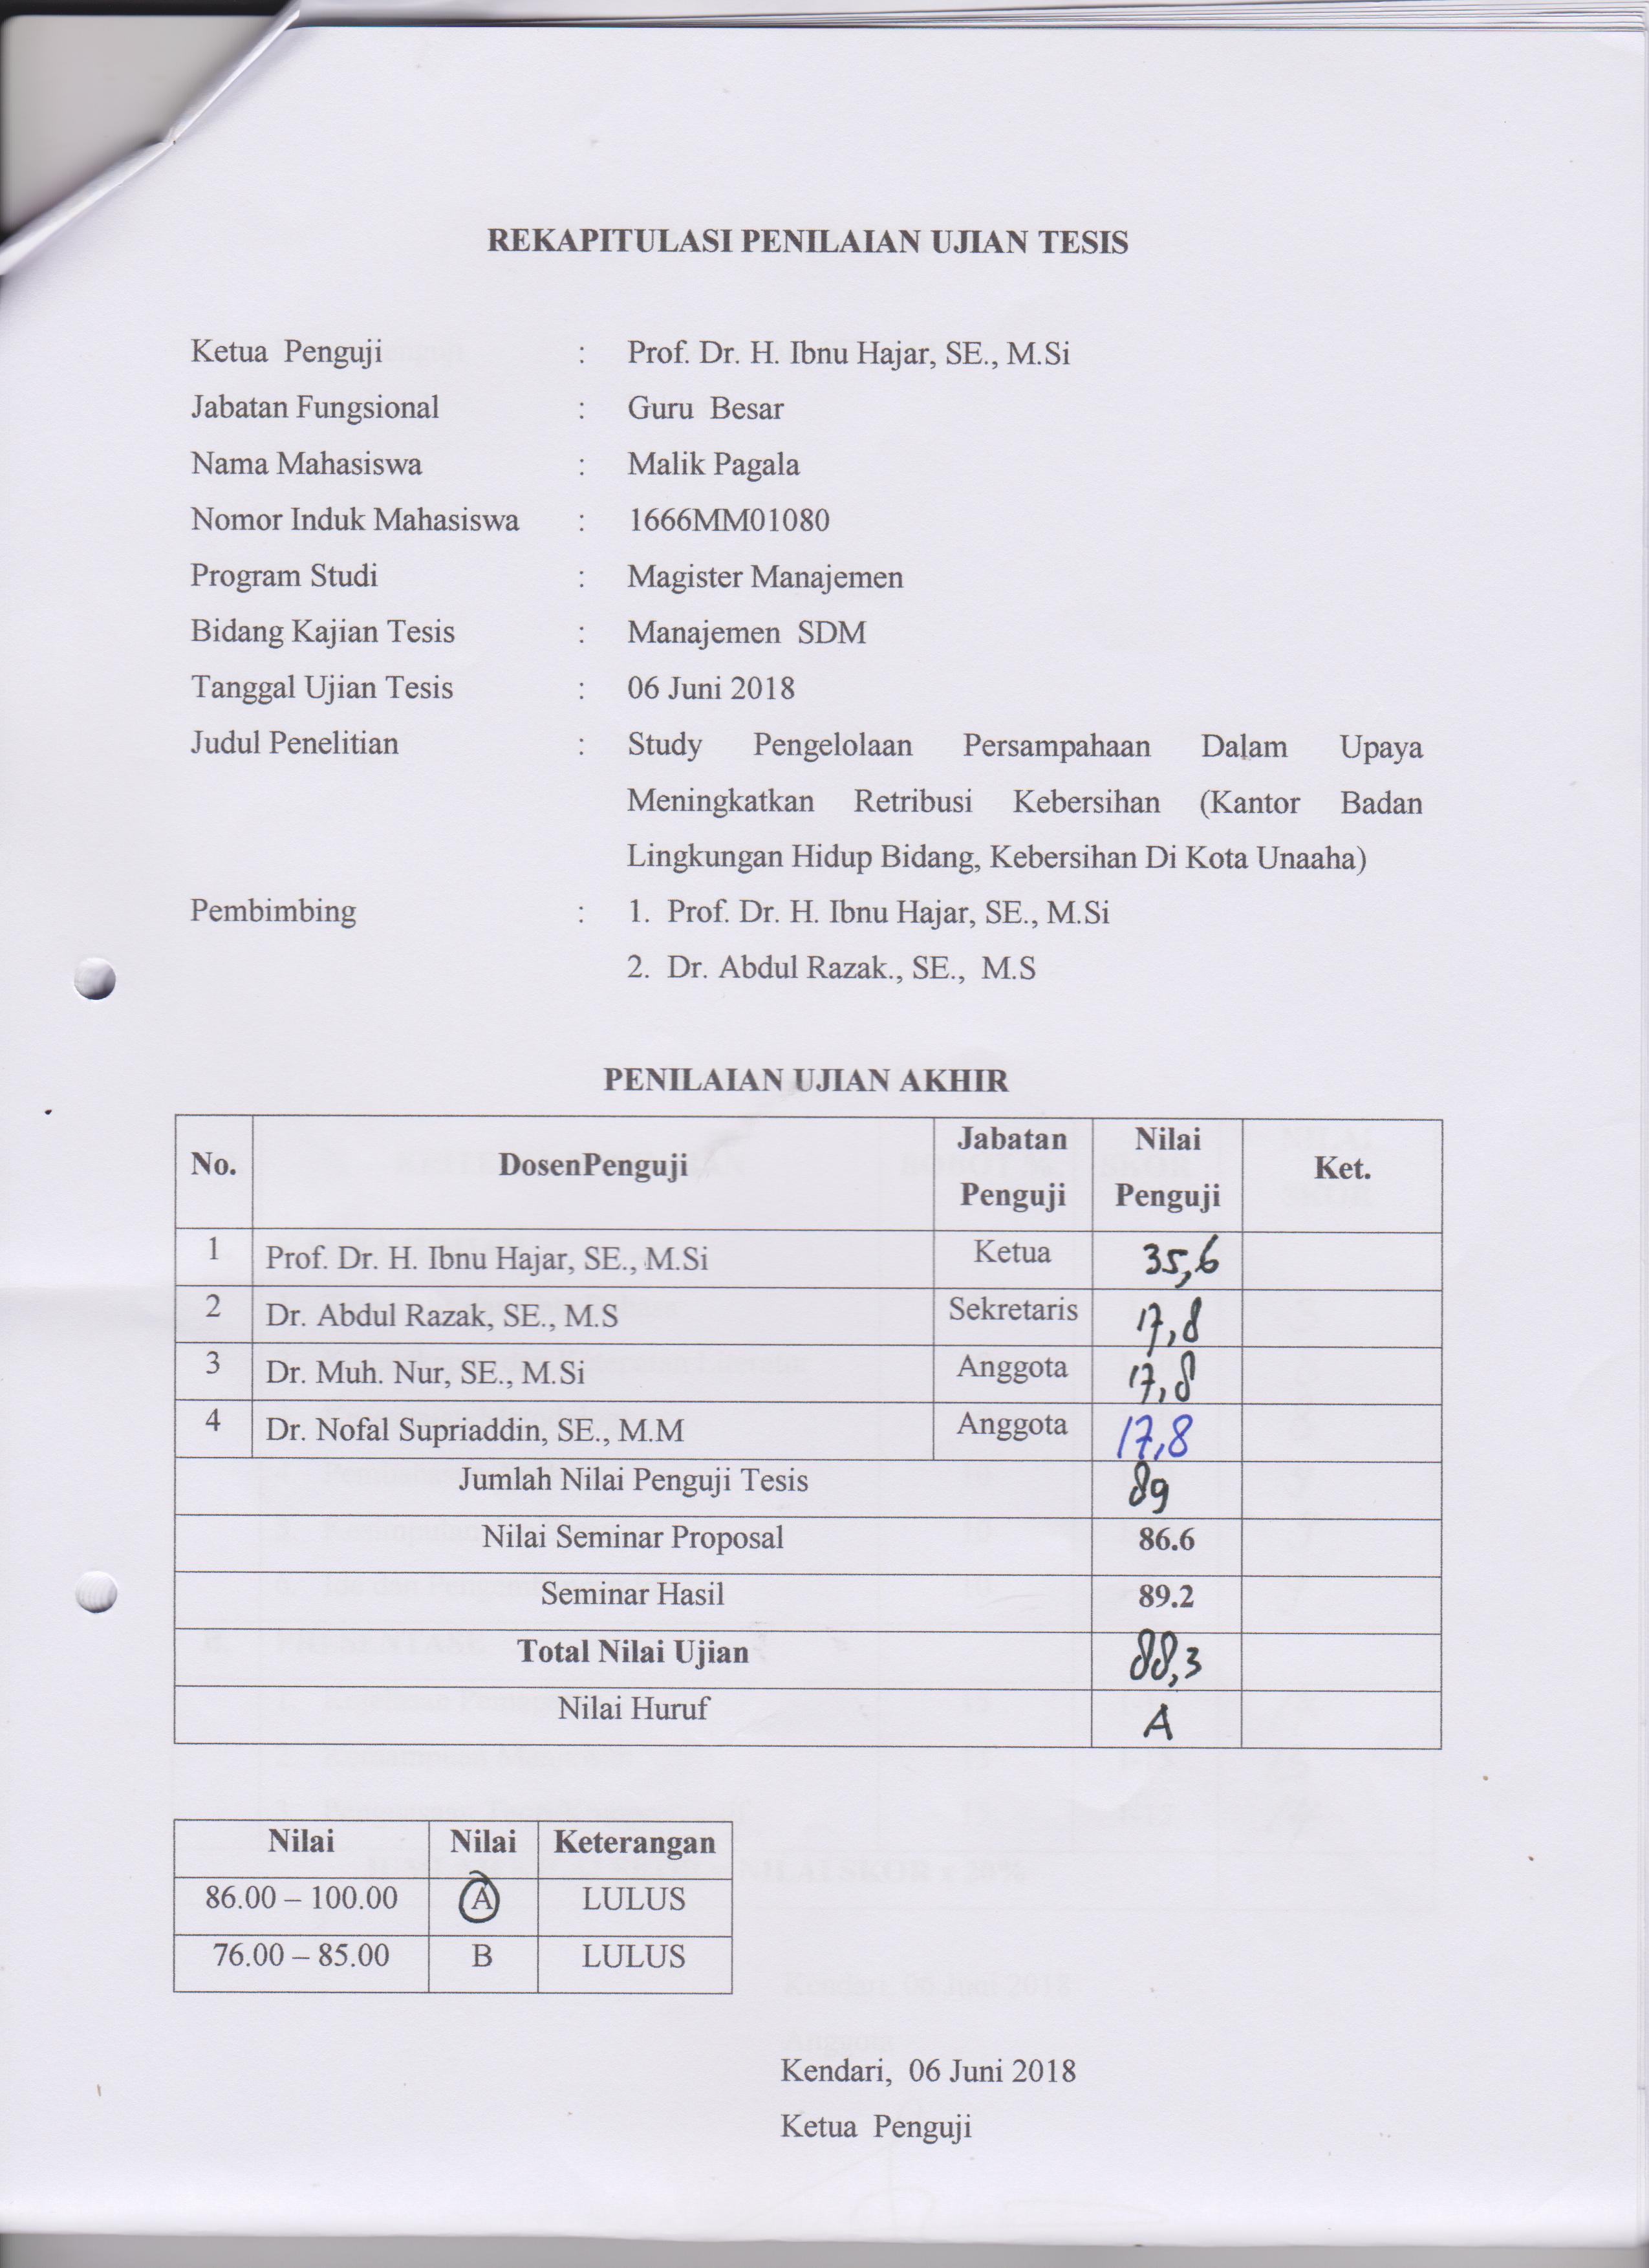 REKAPITULASI PENILAIAN UJIAN TESIS
Ketua Penguji : Prof. Dr. H. Ibnu Hajar, SE., M.Si
Jabatan Fungsional : Guru Besar
Nama Mahasiswa : Malik Pagala
Nomor Induk Mahasiswa : 1666MM01080
Program Studi : Magister Manajemen
Bidang Kajian Tesis : Manajemen SDM
Tanggal Ujian Tesis : 06 Juni 2018
Judul Penelitian : Study Pengelolaan Persampahaan Dalam Upaya
Meningkatkan Retribusi Kebersihan (Kantor Badan
Lingkungan Hidup Bidang, Kebersihan Di Kota Unaaha)
Pembimbing : 1. Prof. Dr. H. Ibnu Hajar, SE., M.Si
2. Dr. Abdul Razak., SE., M.S
PENILAIAN UJIAN AKHIR
No. DosenPenguji Jabatan Penguji Nilai Penguji Ket.
1 Prof. Dr. H. Ibnu Hajar, SE., M.Si Ketua 35,6
2 Dr. Abdul Razak, SE., M.S Sekretaris 17,8
3 Dr. Muh. Nur, SE., M.Si Anggota 17,8
4 Dr. Nofal Supriaddin, SE., M.M Anggota 17,8
Jumlah Nilai Penguji Tesis 89
Nilai Seminar Proposal 86.6
Seminar Hasil 89.2
Total Nilai Ujian 88,3
Nilai Huruf A
Nilai Nilai Keterangan
86.00 – 100.00 A LULUS
76.00 – 85.00 B LULUS
Kendari, 06 Juni 2018
Ketua Penguji